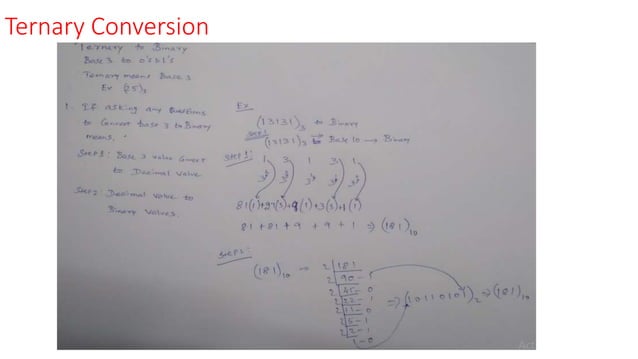 Ternary Conversion
Ternary to Binary
Base 3 to 0's & 1's
Ternary means Base 3
Ex (25)₃
1. If asking any Questions
to Convert base 3 to Binary
means,
Step1: Base 3 value Convert
to Decimal value
Step2: Decimal value to
Binary values.
Ex
(13131)₃ to Binary
Step1
(13131)₃ → to Base 10 → Binary
Step1:
1 3 1 3 1
3⁴ 3³ 3² 3¹ 3⁰
81(1)+27(3)+9(1)+3(3)+1(1)
81 + 81 + 9 + 9 + 1 ⇒ (181)₁₀
Step2:
(181)₁₀ →
2 181
2 90 - 1
2 45 - 0
2 22 - 1
2 11 - 0
2 5 - 1
2 2 - 1
1 - 0
⇒ (10110101)₂ ⇒ (181)₁₀
Act